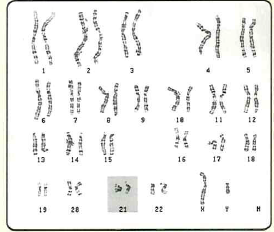 1 2 3 4 5
6 7 8 9 10 11 12
13 14 15 16 17 18
19 20 21 22 X Y M